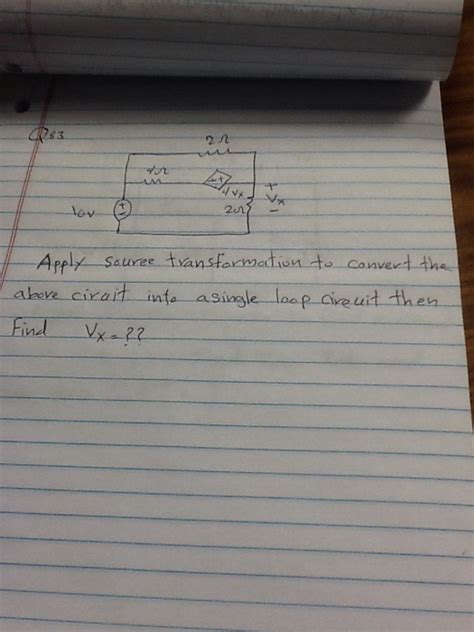 Q83
2Ω
4Ω
- +
4Vx
+
Vx
-
2Ω
10v
+
-
Apply source transformation to convert the
above ciruit into a single loop circuit then
Find Vx = ??